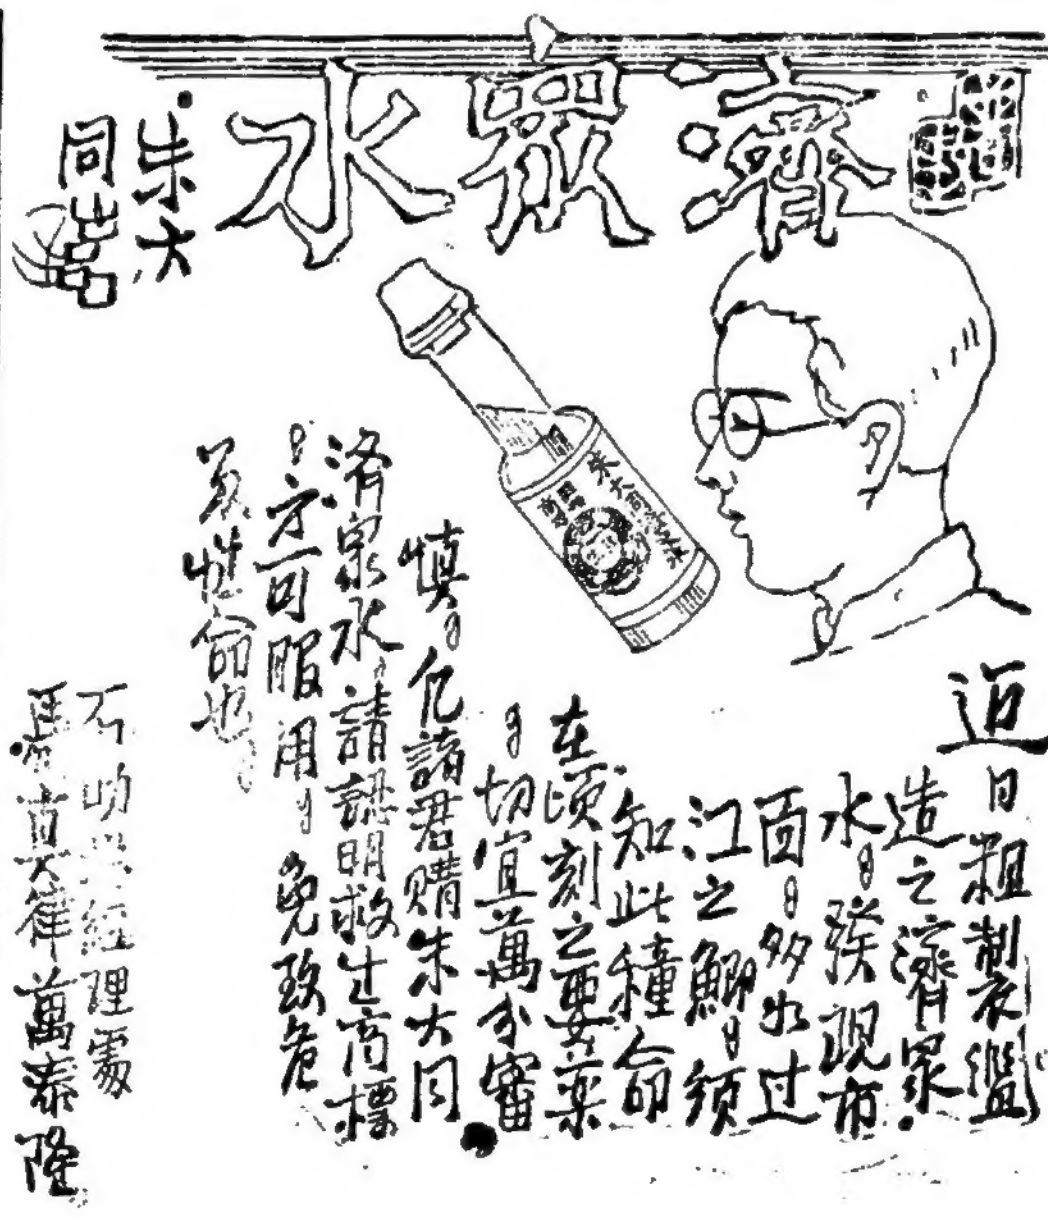 濟眾水
朱大
同
近日粗制濫
造之濟眾
水。發現市
面。多如过
江之鯽。須
知此種命
在頃刻之要藥
。切宜萬分審
慎。凡諸君購朱大同
濟眾水。請認明救世商標
。方可服用。免致危
及性命也。
石叻經理處
大律萬泰隆